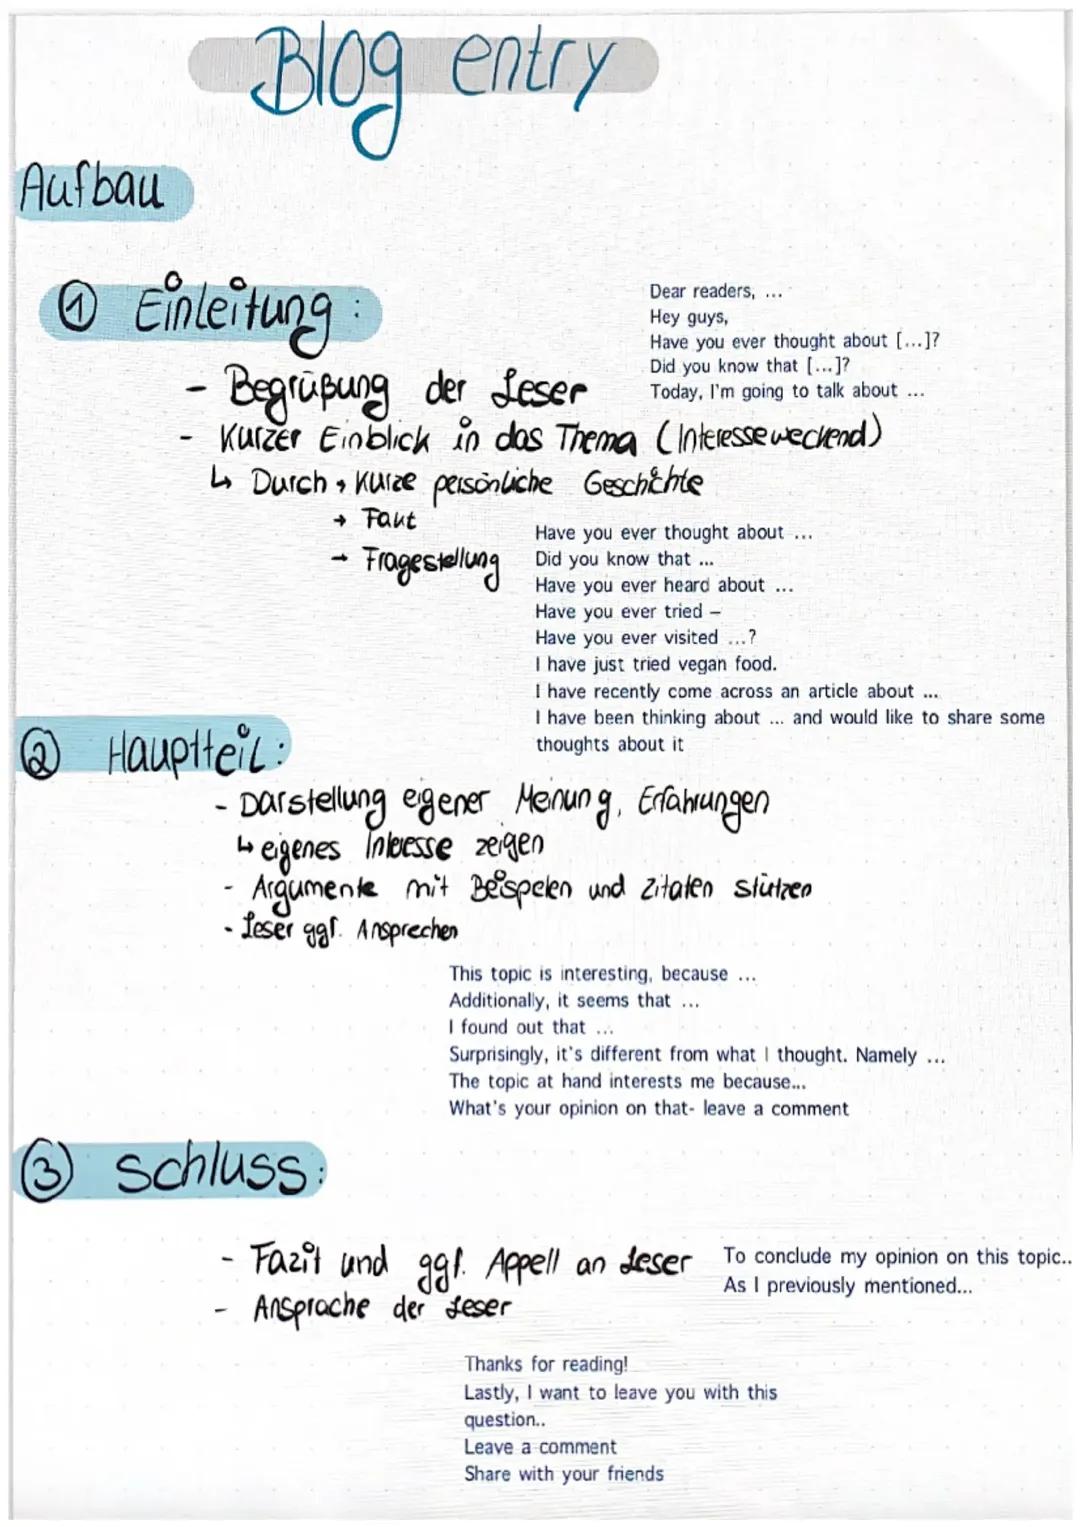 Blog entry
Aufbau
① Einleitung:
Dear readers, ...
Hey guys,
Have you ever thought about [...]?
Did you know that [...]?
Today, I'm going to talk about ...
- Begrüßung der Leser
- Kurzer Einblick in das Thema (Interesseweckend)
↳ Durch → Kurze persönliche Geschichte
→ Fakt
→ Fragestellung
Have you ever thought about ...
Did you know that ...
Have you ever heard about ...
Have you ever tried –
Have you ever visited ...?
I have just tried vegan food.
I have recently come across an article about ...
I have been thinking about ... and would like to share some
thoughts about it
② Hauptteil:
- Darstellung eigener Meinung, Erfahrungen
↳ eigenes Interesse zeigen
- Argumente mit Beispelen und Zitaten stützen
- Leser ggf. Ansprechen
This topic is interesting, because ...
Additionally, it seems that ...
I found out that ...
Surprisingly, it's different from what I thought. Namely ...
The topic at hand interests me because...
What's your opinion on that- leave a comment
③ Schluss:
- Fazit und ggf. Appell an Leser
- Ansprache der Leser
To conclude my opinion on this topic..
As I previously mentioned...
Thanks for reading!
Lastly, I want to leave you with this
question..
Leave a comment
Share with your friends